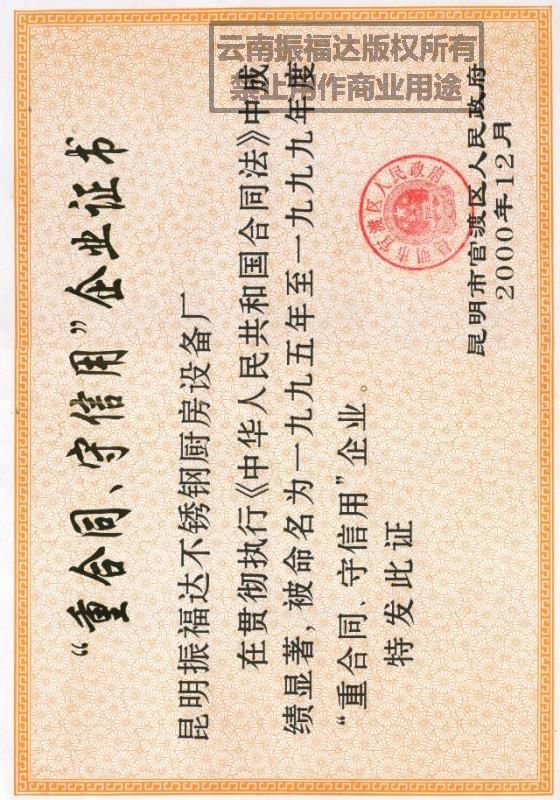 “重合同、守信用”企业证书
昆明振福达不锈钢厨房设备厂
在贯彻执行《中华人民共和国合同法》中成
绩显著，被命名为一九九五年至一九九九年度
“重合同、守信用”企业。
特发此证
昆明市官渡区人民政府
2000年12月
昆明市官渡区人民政府
云南振福达版权所有
禁止用作商业用途